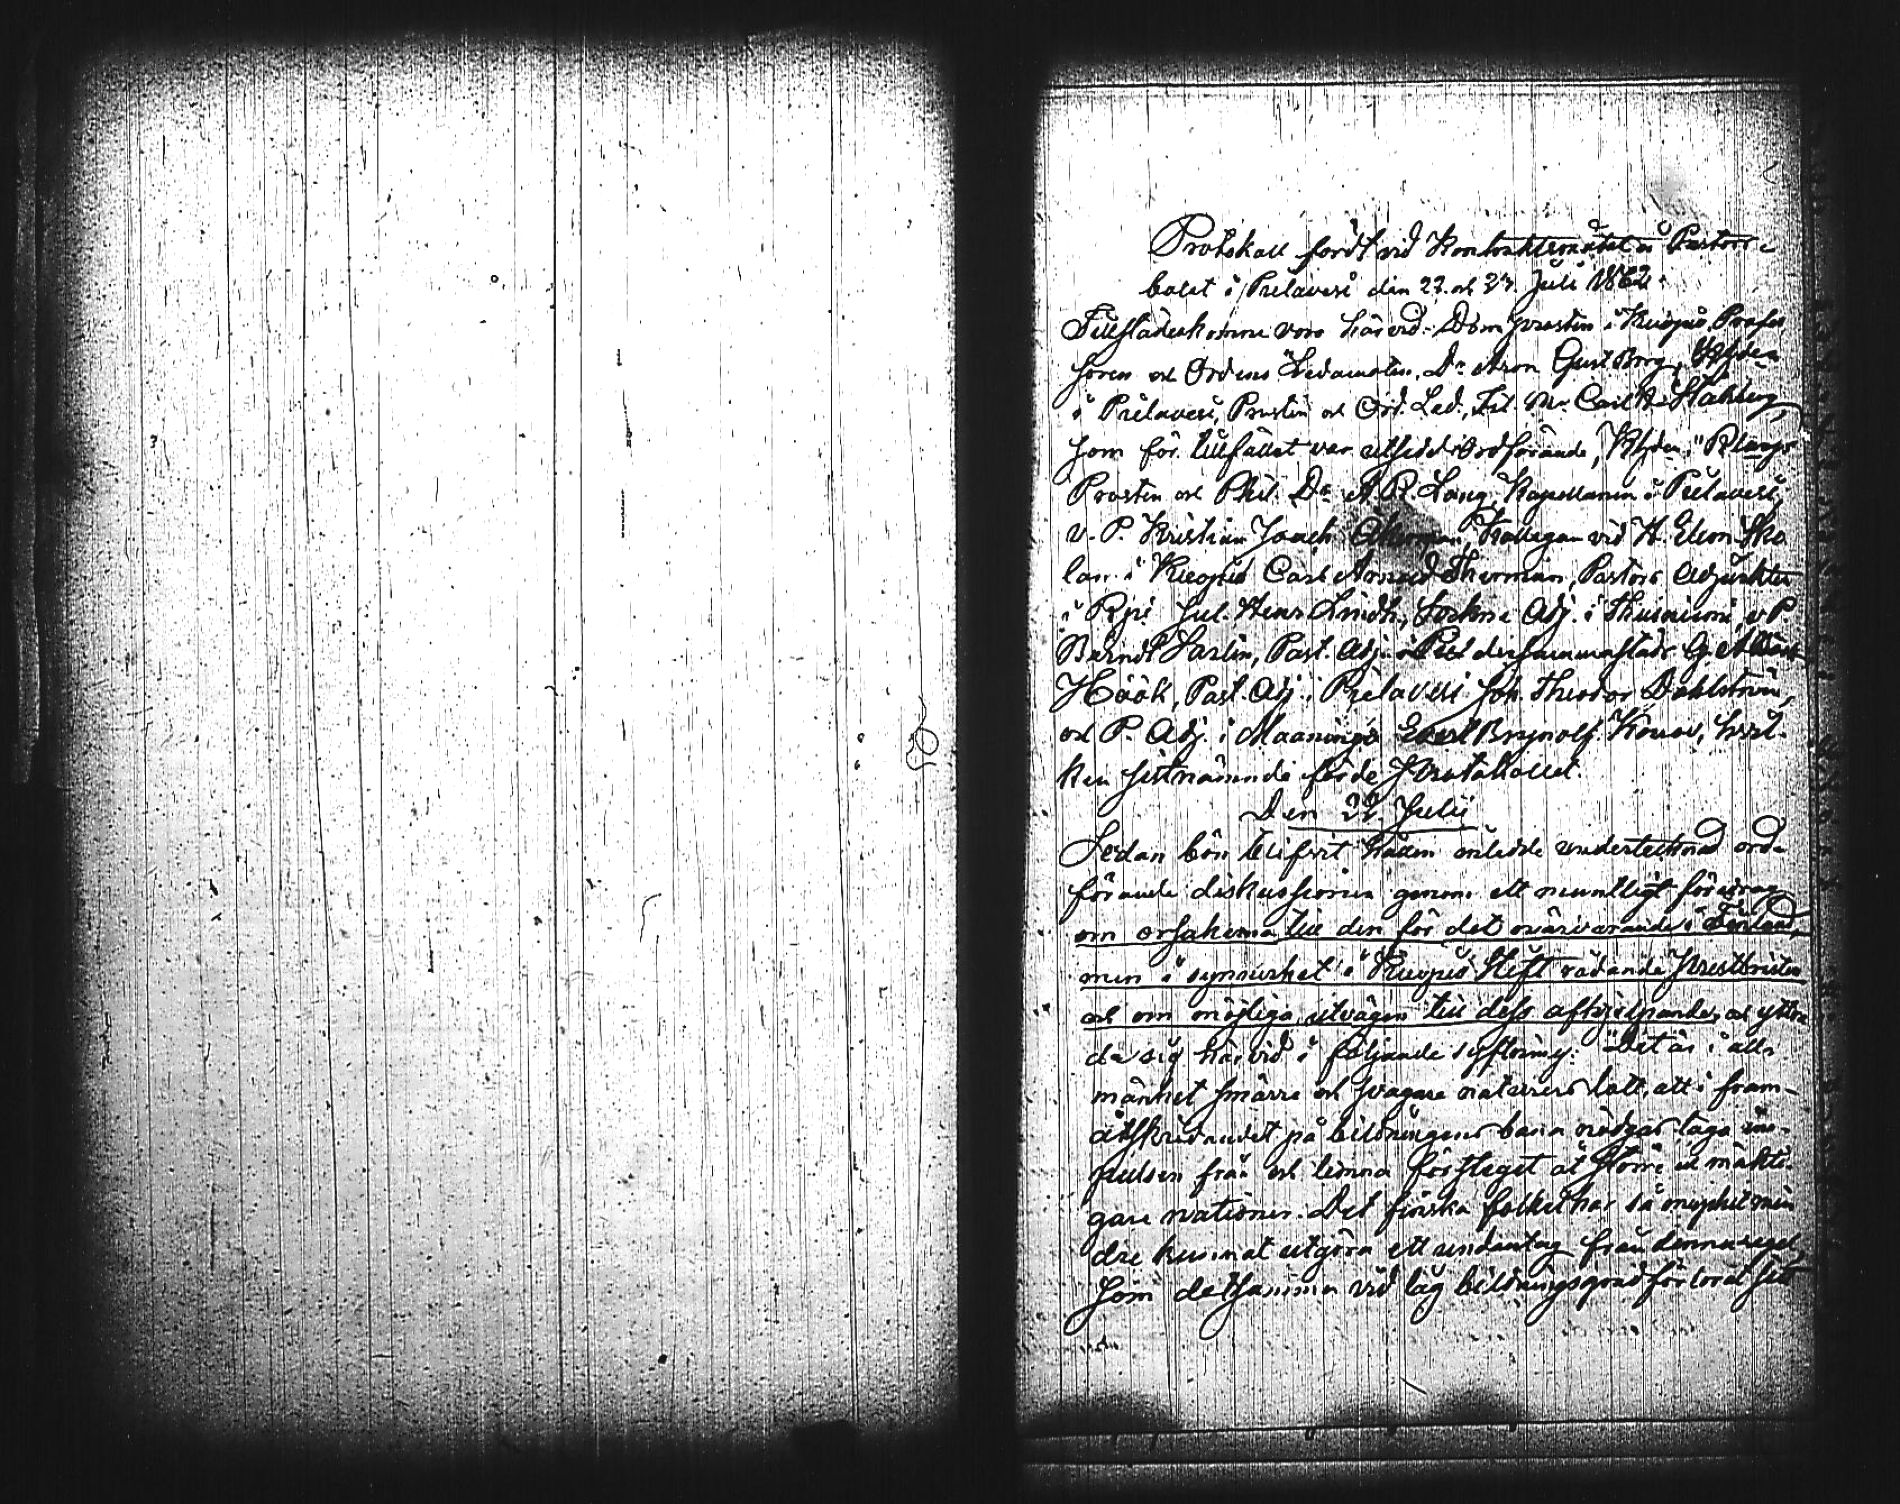 Protokoll fördt vid Kontraktsmötet å Pastors-
bolet i Pielavesi den 22. och 23. Juli 1862.
Tillstädeskomne voro härvid: Domprosten i Kuopio, Profes
soren och Ordens Ledamoten, Dr Aron Gust Borg, Khden
i Pielavesi, Prosten och Ord. Led., Fil. Mr Carl Stålberg,
som för tillfället var utsedd Ordförande, Khden i
Prosten och Phil. Dr A. R. Lang, Kapellanen i Pielavesi,
v. P. Kristian Joach Åkerman, Kollegan vid H. Elem. Sko
lan i Kuopio Carl Therman, Pastors Adjunkten
i Jul. Henr Lindh, Sockne Adj. i v P
Berndt Sarlin, Past. Adj. dersammastäds G.
Höök, Past. Adj. i Pielavesi Joh. Theodor Dahlström,
och P. Adj. i Maaninga Evert Brynolf hvil-
ken sistnämnde förde Protokollet.
Den 22. Julii
Sedan bön blifvit hållen inledde undertecknad ord-
förande diskussionen genom ett muntligt föredrag
om orsakerna till den för det närvarande i Finland,
men i synnerhet i Kuopio Stift rådande prestbristen
och om möjliga utvägar till dess afhjelpande, och yttra
de sig härvid i följande syftning: "Det är i all-
mänhet smärre och svagare naturers lott, att i fram-
åtskridandet på bildningens bana nödgas taga im-
pulsen från och lemna försteget åt större och mäkti
gare nationer. Det finska folket har så mycket min
dre kunnat utgöra ett undantag från denna regel,
som detsamma vid låg bildningsgrad förlorat sit